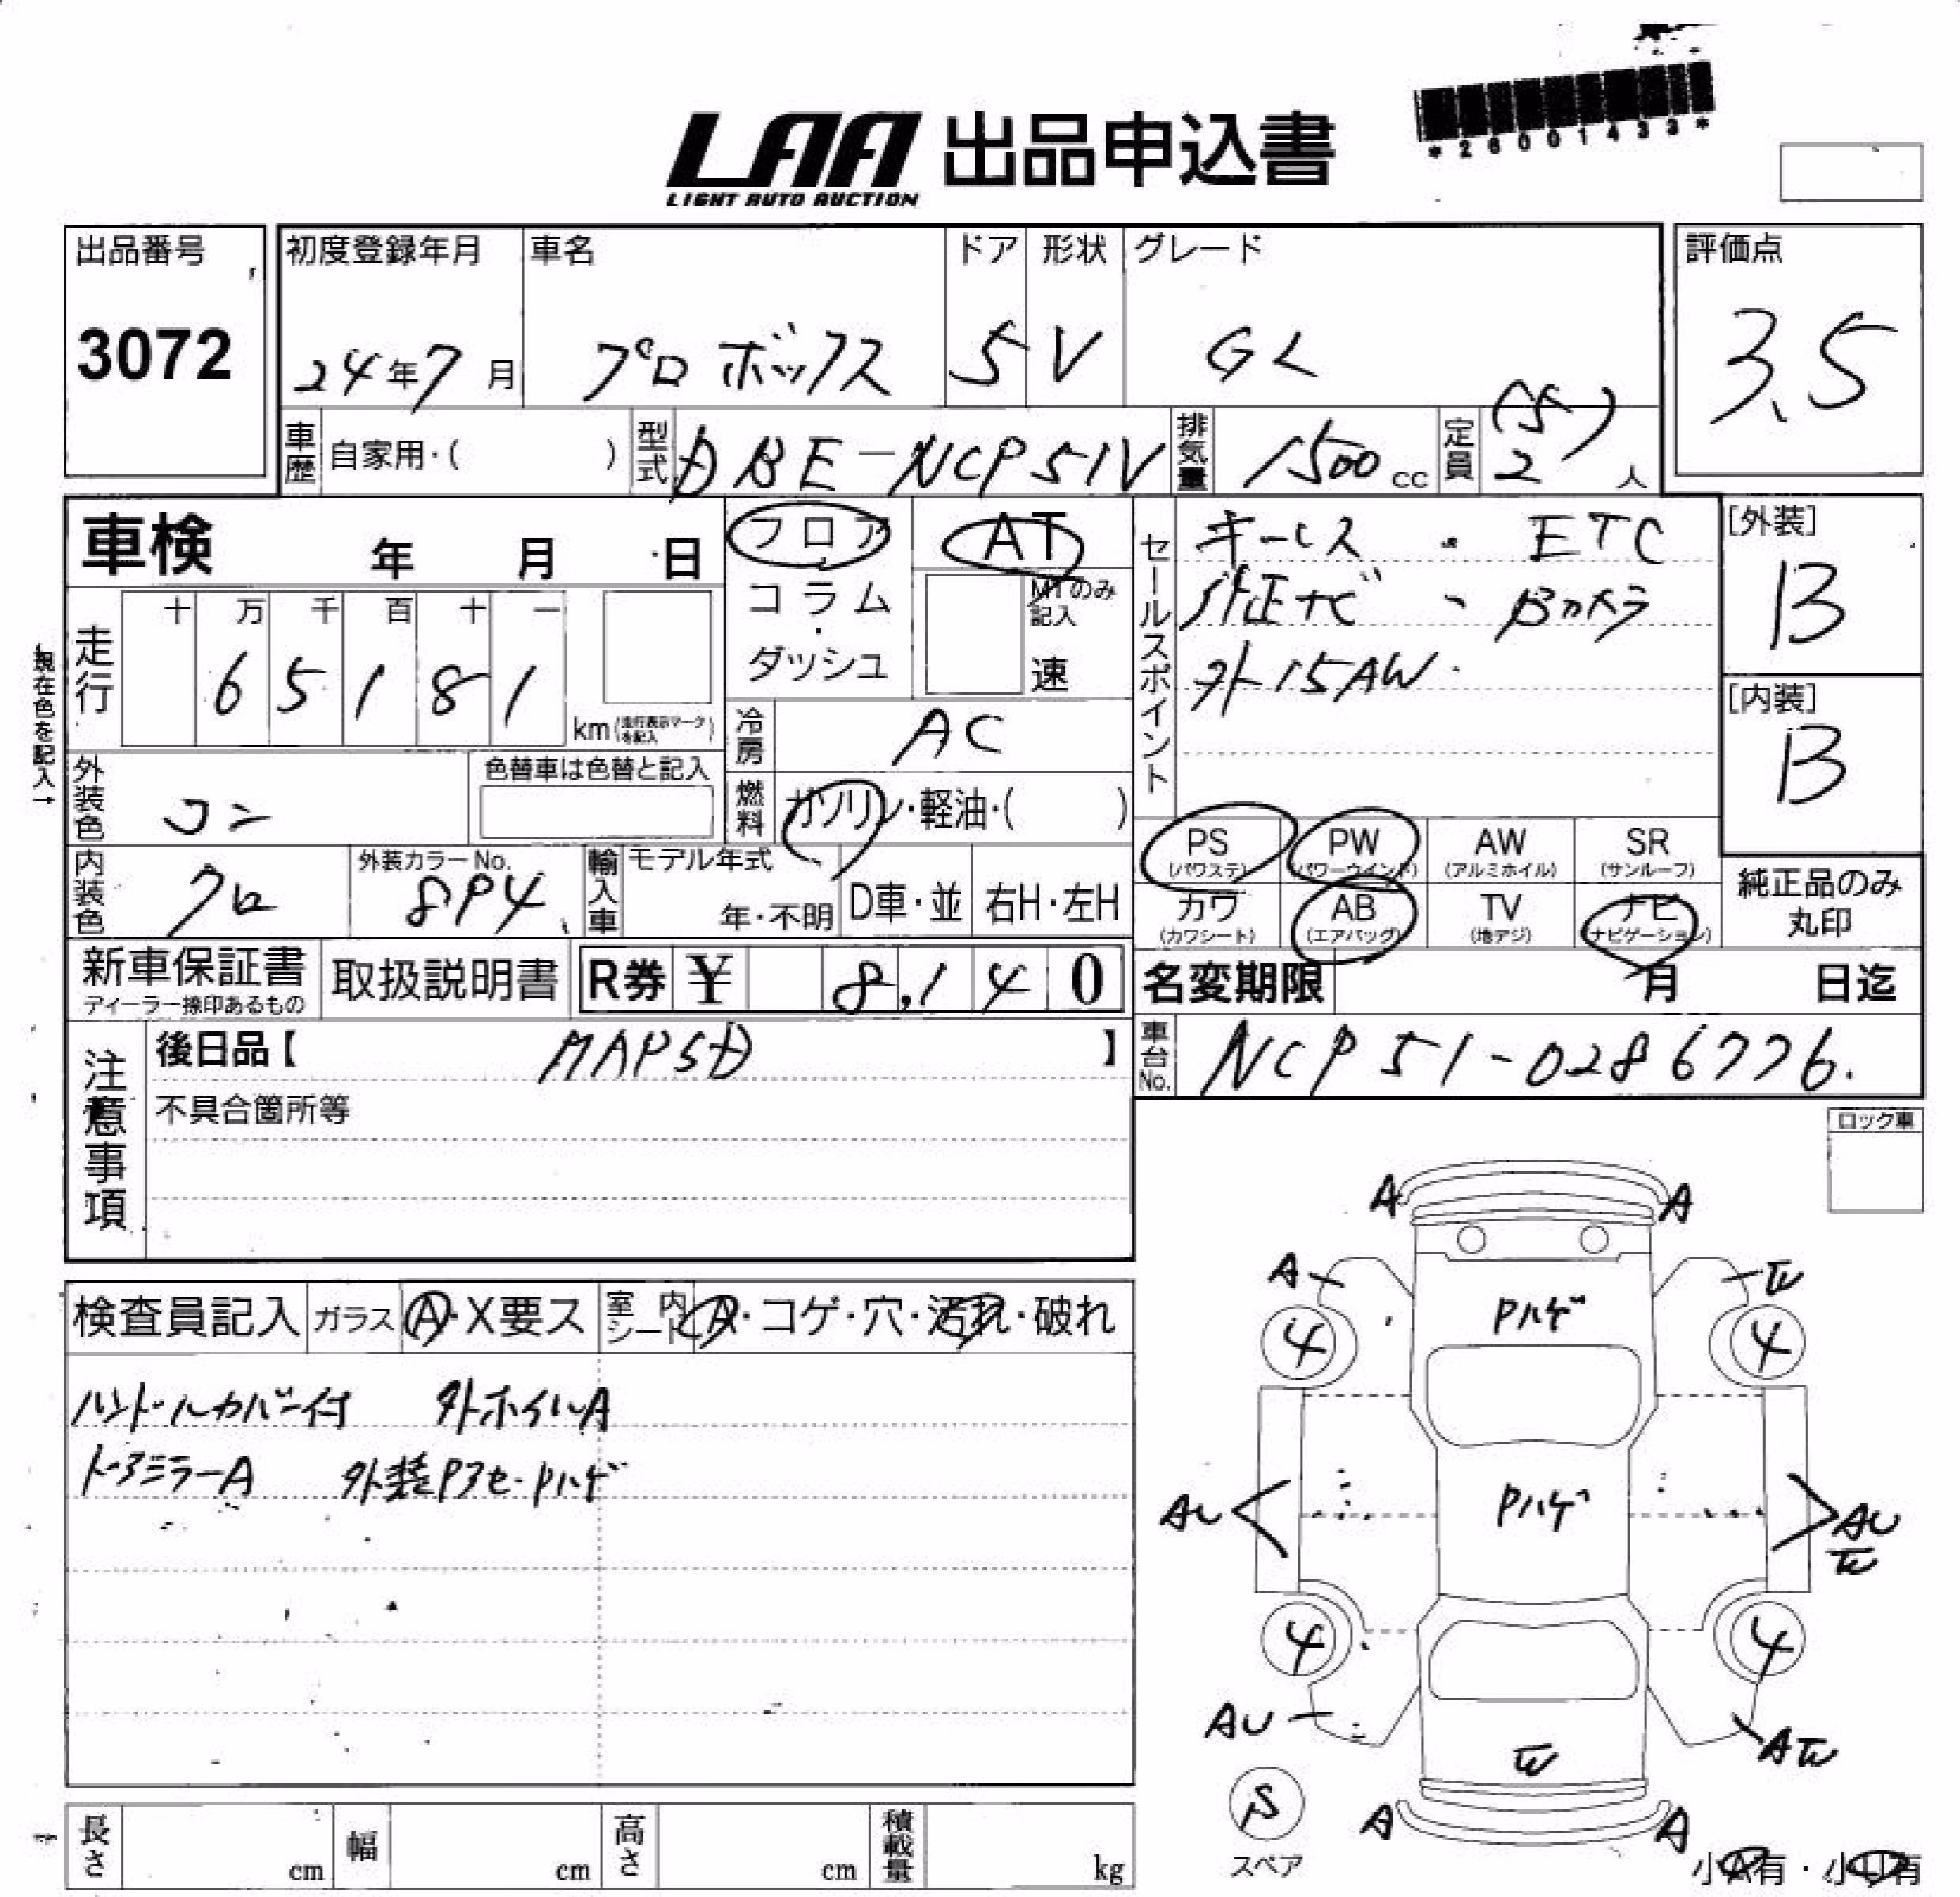 *26001433*
LAA 出品申込書
LIGHT AUTO AUCTION
出品番号
3072
初度登録年月
24年7月
車名
プロボックス
ドア
5
形状
V
グレード
GL
評価点
3.5
車歴 自家用・( )
型式 DBE-NCP51V
排気量 1500cc
定員 2(5)人
車検 年 月 日
フロア・コラム・ダッシュ
AT
MTのみ記入
速
セールスポイント
キーレス . ETC
純正ナビ 、 Bカメラ
外15AW.
[外装]
B
[内装]
B
現在色を記入→
走行
十 万 千 百 十 一
65181
km(走行表示マークを記入)
冷房 AC
燃料 ガソリン・軽油・( )
外装色 コン
色替車は色替と記入
内装色 クロ
外装カラーNo.
8P4
輸入車
モデル年式
年・不明
D車・並
右H・左H
PS (パワステ)
PW (パワーウインド)
AW (アルミホイル)
SR (サンルーフ)
カワ (カワシート)
AB (エアバッグ)
TV (地デジ)
ナビ (ナビゲーション)
純正品のみ
丸印
新車保証書
ディーラー捺印あるもの
取扱説明書
R券 ¥ 8,140
名変期限 月 日迄
注意事項
後日品【 MAPSD 】
不具合箇所等
車台No. NCP51-0286776.
ロック車
検査員記入
ガラス A・X要ス
室内シート A・コゲ・穴・汚れ・破れ
ハンドルカバー付 外ホイルA
ドアミラーA 外装Pアセ・Pハゲ
A A
A W
Pハゲ
4 4
Pハゲ
AU AU
W
4 4
AU AW
W
S
スペア
A A
小A有・小U有
長さ cm
幅 cm
高さ cm
積載量 kg